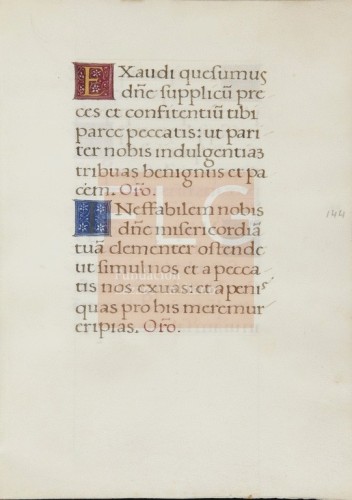 EXaudi quesumus
dn̄e supplicū pre
ces et confitentiū tibi
parce peccatis: ut pari
ter nobis indulgentiaʒ
tribuas benignus et pa
cem. Or̄o.
INeffabilem nobis
dn̄e misericordiā
tuā clementer ostende
ut simul nos et a pecca
tis nos exuas: et a peni
quas pro his meremur
eripias. Or̄o.
144
FLG